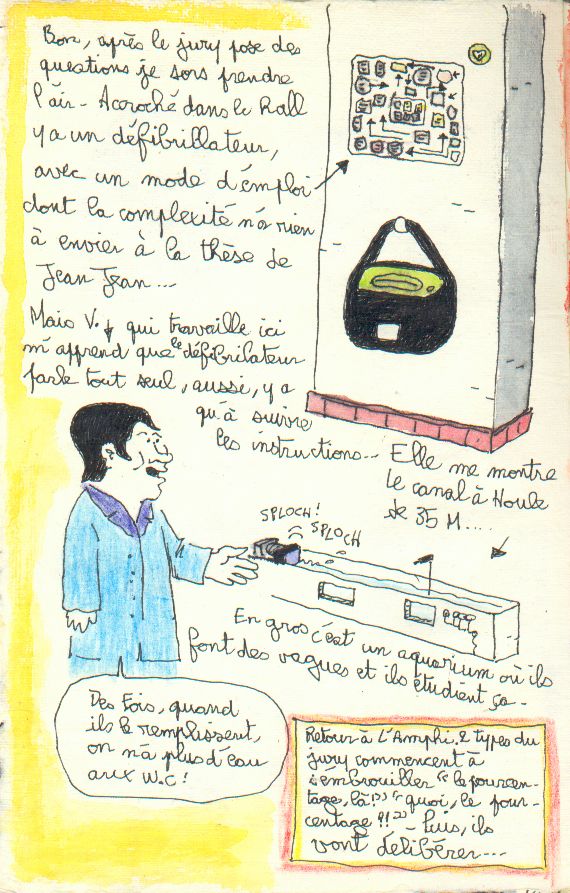 Bon, après le jury pose des
questions je sors prendre
l'air - Acroché dans le hall
y a un défibrillateur,
avec un mode d'emploi
dont la complexité n'a rien
à envier à la thèse de
Jean Jean...
Mais V. qui travaille ici
m'apprend que le défibrilateur
parle tout seul, aussi, y a
qu'à suivre
les instructions...
Elle me montre
le canal à Houle
de 35 M....
SPLOCH!
SPLOCH
En gros c'est un aquarium où ils
font des vagues et ils étudient ça -
Des Fois, quand
ils le remplissent,
on n'a plus d'eau
aux W.C!
Retour à l'Amphi. 2 types du
jury commencent à
s'embrouiller "le pourcen-
tage, là!" "quoi, le pour-
centage!!" - Puis, ils
vont délibérer...